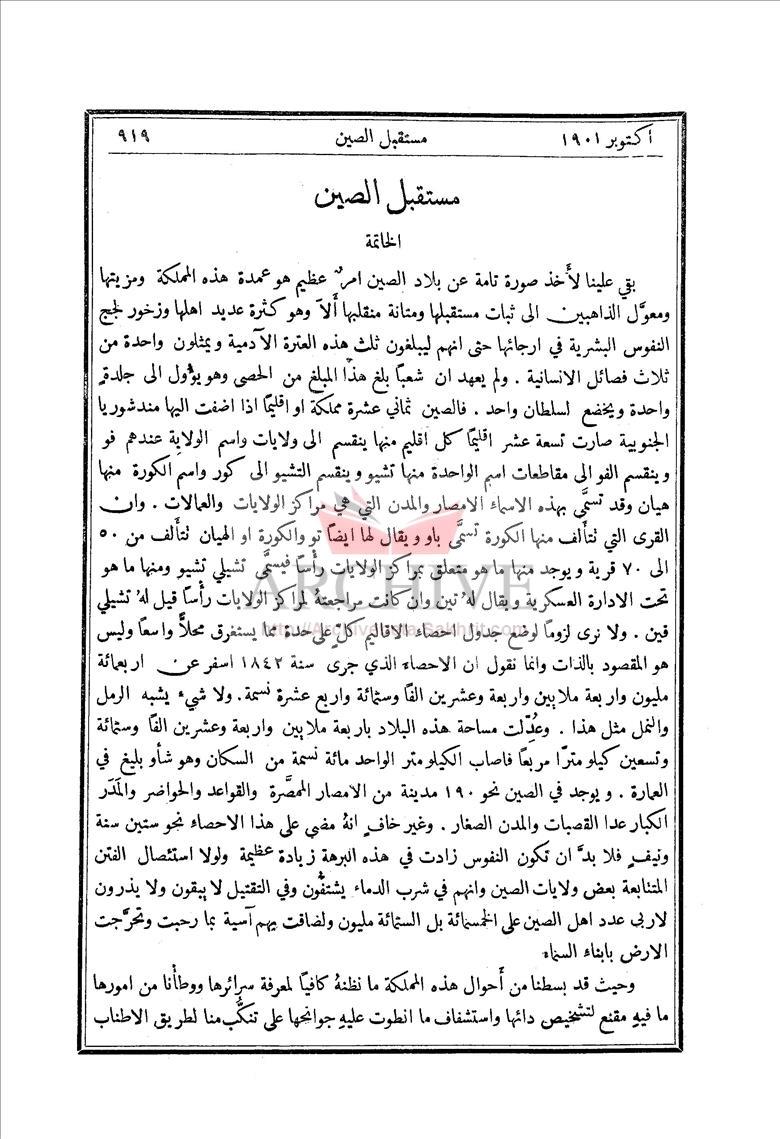 أكتوبر ١٩٠١ مستقبل الصين ٩١٩
مستقبل الصين
الخاتمة
بقي علينا لأَخذ صورة تامة عن بلاد الصين امرٌ عظيم هو عمدة هذه المملكة ومزيتها
ومعوَّل الذاهبين الى ثبات مستقبلها ومتانة منقلبها أَلاَ وهو كثرة عديد اهلها وزخور لجج
النفوس البشرية في ارجائها حتى انهم ليبلغون ثلث هذه العترة الآدمية ويمثلون واحدة من
ثلاث فصائل الانسانية . ولم يعهد ان شعباً بلغ هذا المبلغ من الحصى وهو يؤول الى جلدةٍ
واحدة ويخضع لسلطان واحد . فالصين ثماني عشرة مملكة او اقليماً اذا اضفت اليها مندشوريا
الجنوبية صارت تسعة عشر اقليماً كل اقليم منها ينقسم الى ولايات واسم الولاية عندهم فو
وينقسم الفو الى مقاطعات اسم الواحدة منها تشيو وينقسم التشيو الى كور واسم الكورة منها
هيان وقد تسمَّى بهذه الاسماء الامصار والمدن التي هي مراكز الولايات والعمالات . وان
القرى التي نتأَلف منها الكورة تسمَّى باو ويقال لها ايضاً تو والكورة او الهيان نتأَلف من ٥٠
الى ٧٠ قرية ويوجد منها ما هو متعلق بمراكز الولايات رأساً فيسمَّى تشيلي تشيو ومنها ما هو
تحت الادارة العسكرية ويقال لهُ تين وان كانت مراجعتهُ لمراكز الولايات رأساً قيل لهُ تشيلي
قين . ولا نرى لزوماً لوضع جدول احصاء الاقاليم كلٍّ على حدة مما يستغرق محلاًّ واسعاً وليس
هو المقصود بالذات وانما نقول ان الاحصاء الذي جرى سنة ١٨٤٢ اسفر عن اربعمائة
مليون واربعة ملايين واربعة وعشرين الفاً وستمائة واربع عشرة نسمة. ولا شيء يشبه الرمل
والنمل مثل هذا . وعُدِّلت مساحة هذه البلاد باربعة ملايين واربعة وعشرين الفاً وستمائة
وتسعين كيلومتراً مربعاً فاصاب الكيلومتر الواحد مائة نسمة من السكان وهو شأو بليغ في
العمارة . ويوجد في الصين نحو ١٩٠ مدينة من الامصار الممصَّرة والقواعد والحواضر والمَدَر
الكبار عدا القصبات والمدن الصغار . وغير خافٍ انهُ مضى على هذا الاحصاء نحو ستين سنة
ونيفٍ فلا بدَّ ان تكون النفوس زادت في هذه البرهة زيادة عظيمة ولولا استئصال الفتن
المتتابعة بعض ولايات الصين وانهم في شرب الدماء يشتفُّون وفي التقتيل لا يبقون ولا يذرون
لاربى عدد اهل الصين على الخمسمائة بل الستمائة مليون ولضاقت بهم آسية بما رحبت وتحرَّجت
الارض بابناء السماء
وحيث قد بسطنا من أَحوال هذه المملكة ما نظنهُ كافياً لمعرفة سرائرها ووطأْنا من امورها
ما فيهِ مقنع لتشخيص دائها واستشفاف ما انطوت عليهِ جوانحها على تنكُّب منا لطريق الاطناب
ARCHIVE
http://Archivebeta.Sakhrit.com